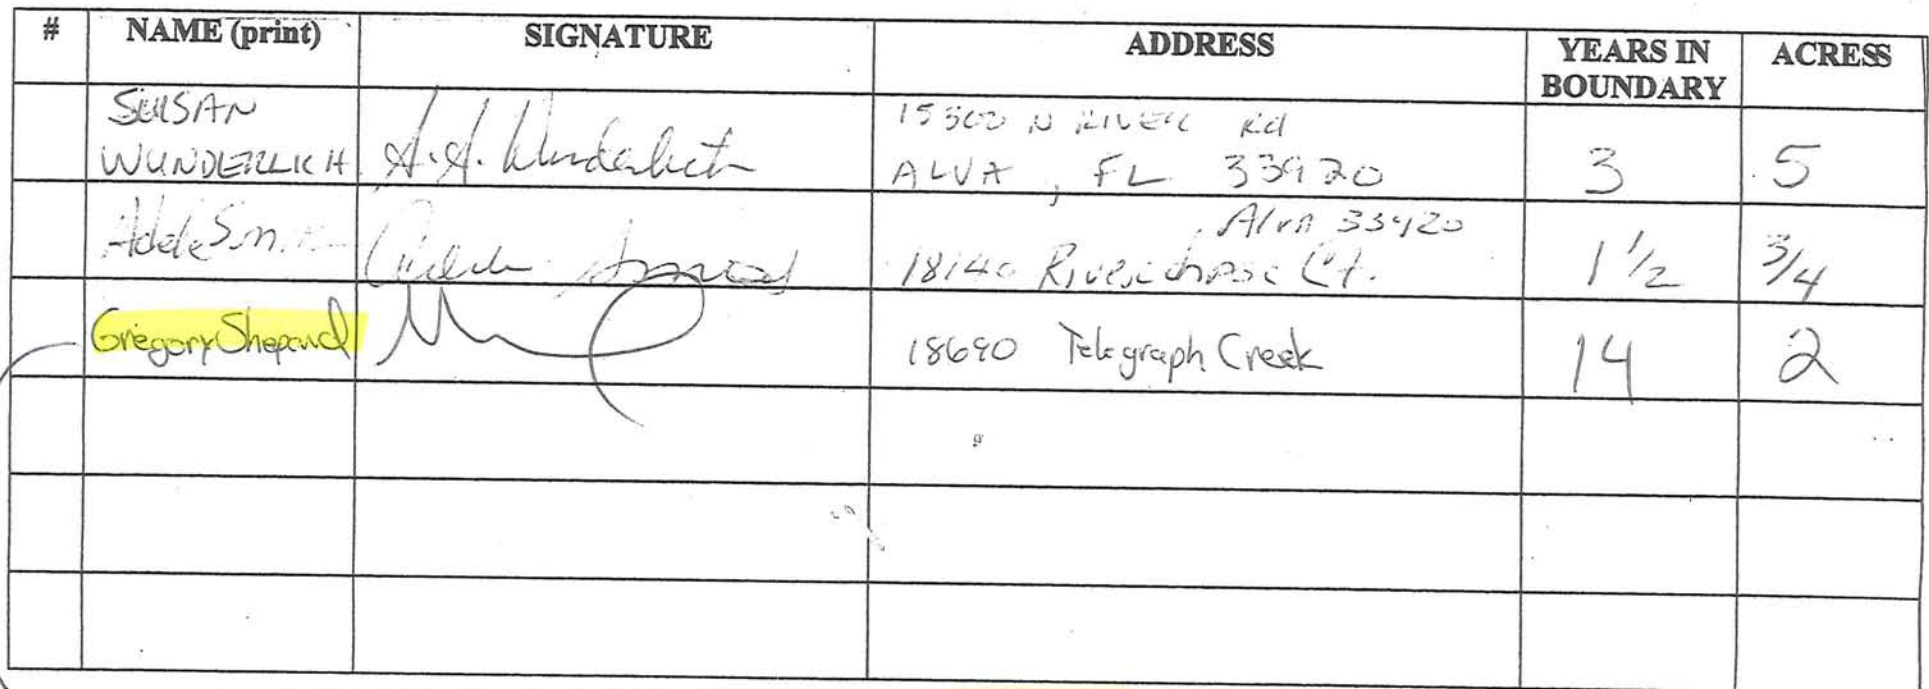 # NAME (print) SIGNATURE ADDRESS YEARS IN BOUNDARY ACRESS
SUSAN
WUNDERLICH
15300 N RIVER Rd
ALVA, FL 33920
3
5
Adele
Alva 33920
18140 Riverchase Ct.
1 1/2
3/4
Gregory Shepard
18690 Telegraph Creek
14
2